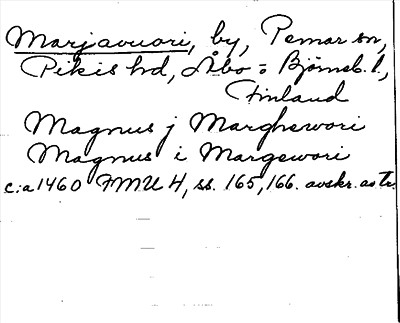 Marjavuori, by, Pemar sn,
Pikis hd, Åbo = Björneb. l,
Finland
Magnus j Marghewori
Magnus i Margewori
c:a 1460 FMU 4, ss. 165, 166. avskr. av Tr.